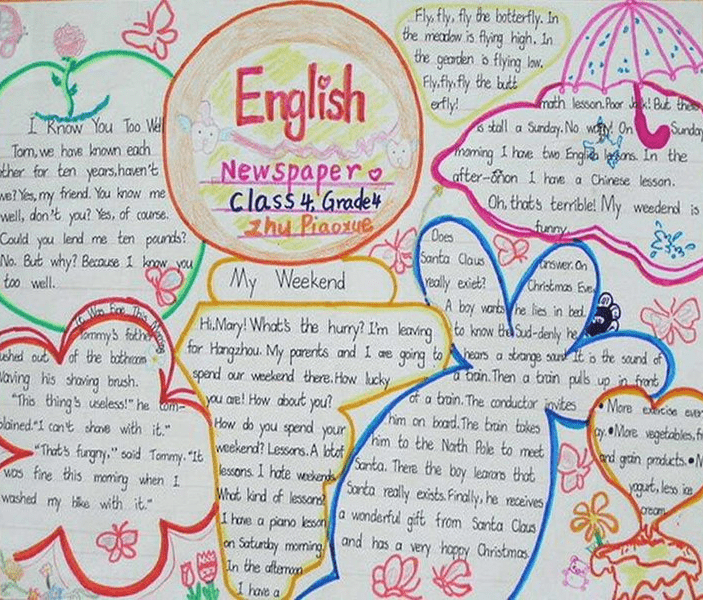 English
Newspaper
Class 4. Grade 4
Zhu Piaoxue
I Know You Too Well
Tom, we have known each
other for ten years, haven't
we? Yes, my friend. You know me
well, don't you? Yes, of course.
Could you lend me ten pounds?
No. But why? Because I know you
too well.
Fly, fly, fly the botterfly. In
the meadow is flying high. In
the gearden is flying low.
Fly, fly, fly the butt
erfly!
math lesson. Poor Jack! But there
is stall a Sunday. No worry! On Sunday
morning I have two English lessons. In the
after-onon I have a Chinese lesson.
Oh, that's terrible! My weedend is
funny.
My Weekend
Hi, Mary! What's the hurry? I'm leaving
for Hangzhou. My parents and I are going to
spend our weekend there. How lucky
you are! How about you?
How do you spend your
weekend? Lessons. A lotof
lessons. I hate weekends
What kind of lessons?
I have a piano lesson
on Saturday morning
In the afternoon
I have a
It Was Fine This Morning
Tommy's father
ushed out of the bathroom
waving his shaving brush.
"This thing's useless!" he com-
plained. "I can't shave with it."
"That's fungny," said Tommy. "It
was fine this morning when I
washed my bike with it."
Does
Santa Claus
really exiet?
A boy wants
to know the
answer. On
Christmas Eve,
he lies in bed.
Sud-denly he
hears a strange sound. It is the sound of
a train. Then a train pulls up in front
of a train. The conductor invites
him on board. The train takes
him to the North Pole to meet
Santa. There the boy learons that
Santa really exists. Finally, he receives
a wonderful gift from Santa Claus
and has a very happy Christmas.
• More exercise ever
ay. • More vegetables, fr
and grain products. • M
yogurt, less ice
cream